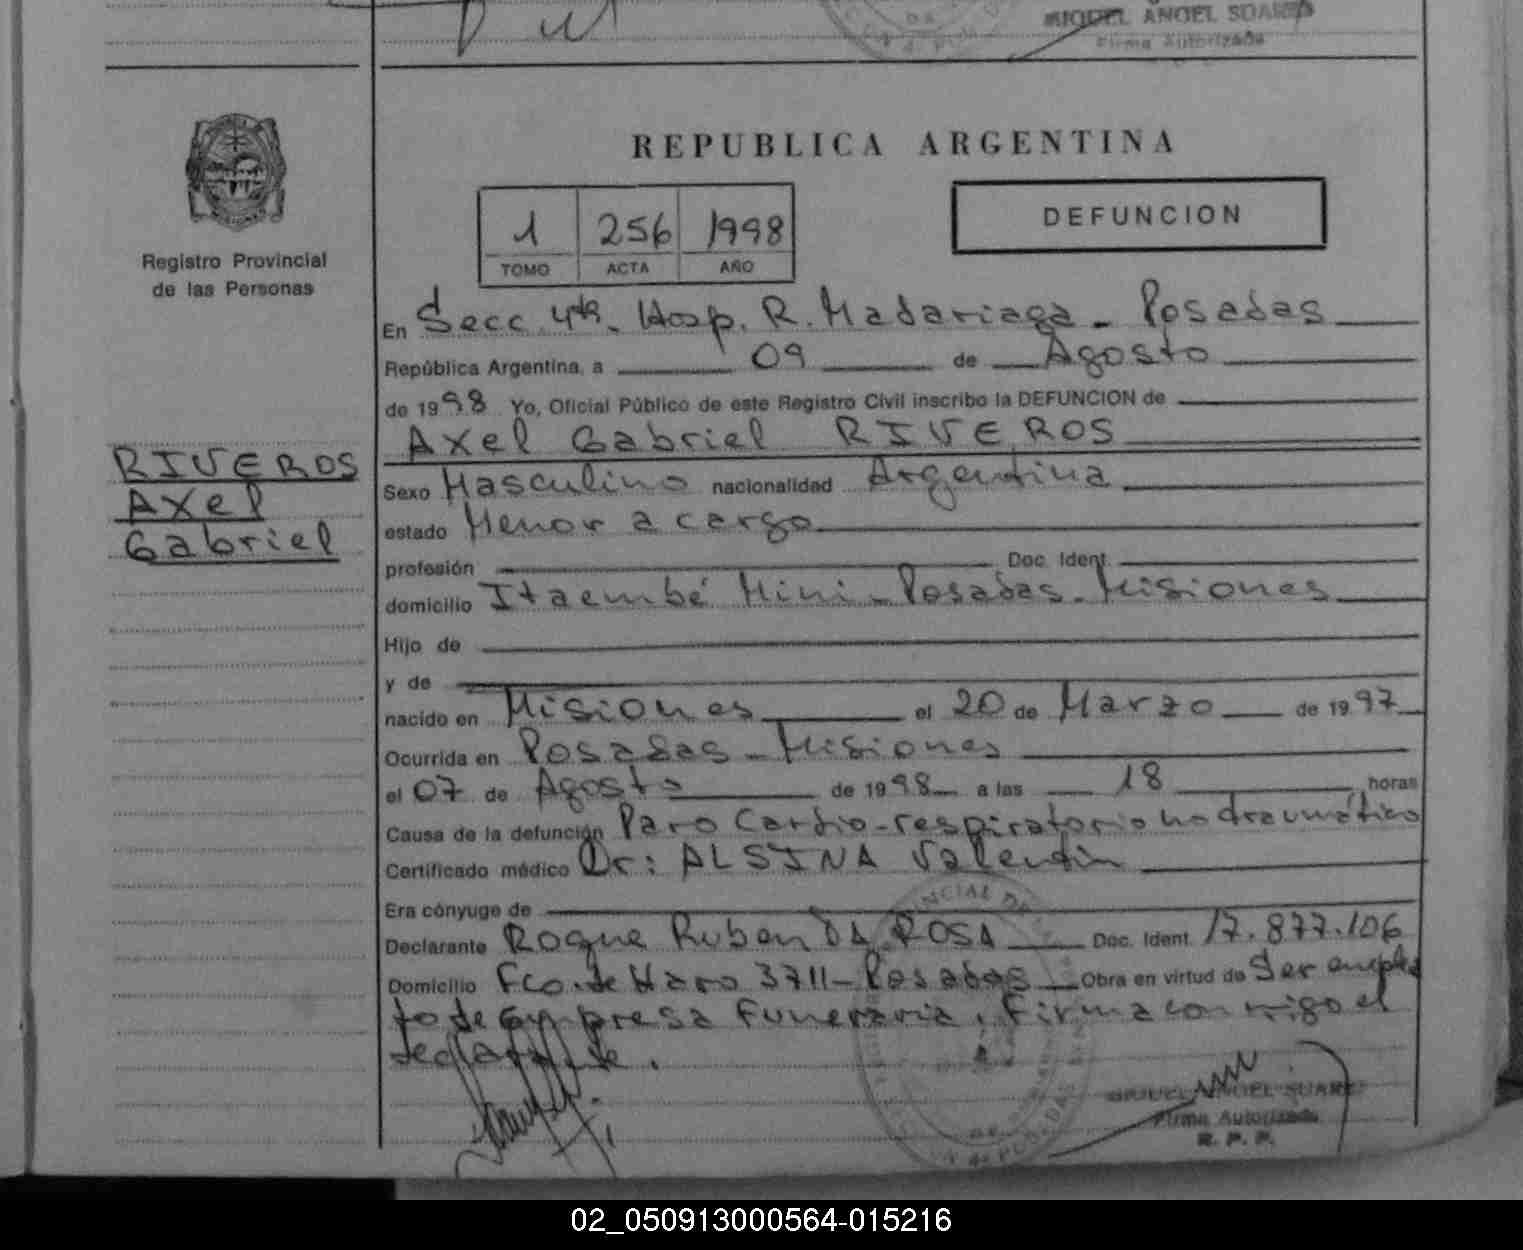 MIGUEL ANGEL SUAREZ
Firma Autorizada
Registro Provincial
de las Personas
RIVEROS
Axel
Gabriel
REPUBLICA ARGENTINA
1 256 1998
TOMO ACTA AÑO
DEFUNCION
En Secc. 4ta. Hosp. R. Madariaga - Posadas
República Argentina, a 09 de Agosto
de 1998 Yo, Oficial Público de este Registro Civil inscribo la DEFUNCION de
Axel Gabriel RIVEROS
Sexo Masculino nacionalidad Argentina
estado Menor a cargo
profesión Doc. Ident.
domicilio Itaembé Mini - Posadas - Misiones
Hijo de
y de
nacido en Misiones el 20 de Marzo de 1997
Ocurrida en Posadas - Misiones
el 07 de Agosto de 1998 a las 18 horas
Causa de la defunción Paro Cardio-respiratorio no traumático
Certificado médico Dr: ALSINA Valentin
Era cónyuge de
Declarante Roque Ruben DA ROSA Doc. Ident. 17.877.106
Domicilio Fco. de Haro 3711 - Posadas Obra en virtud de Ser emplea
do de Empresa Funeraria. Firma conmigo el
declarante.
MIGUEL ANGEL SUAREZ
Firma Autorizada
R. P. P.
02_050913000564-015216